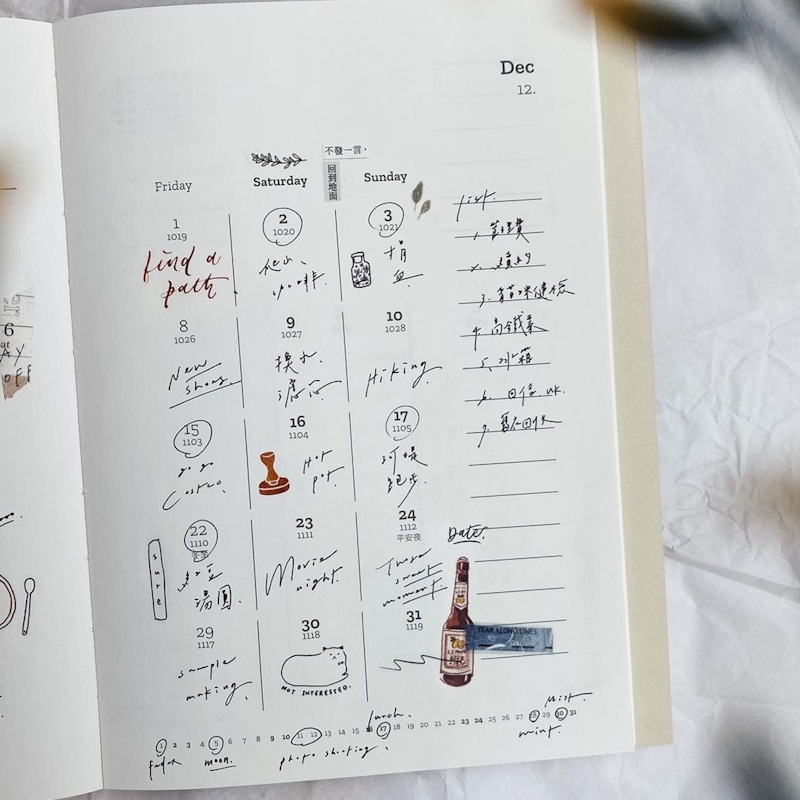 Dec
12.
不發一言，
回到地面
Friday
Saturday
Sunday
list.
1
1019
find a
path
2
1020
3
1021
捐
血
1. 管理費
3. 健檢
4. 高鐵票
5. 冰箱
6. 回信 UK.
7.
8
1026
New
shoes
9
1027
換水
濾芯
10
1028
Hiking
15
1103
go go
Costco.
16
1104
Hot
pot.
17
1105
河堤
跑步
22
1110
冬至
紅豆
湯圓.
sure
23
1111
Movie
night.
24
1112
平安夜
sweet
moment
Date.
TEAR ALONG LINES
BEER
29
1117
sample
making.
30
1118
NOT INTERESTED.
31
1119
lunch.
1 2 3 4 5 6 7 8 9 10 11 12 13 14 15 16 17 18 19 20 21 22 23 24 25 26 27 28 29 30 31
moon.
photo shooting.
mint.
6
AY
OFF